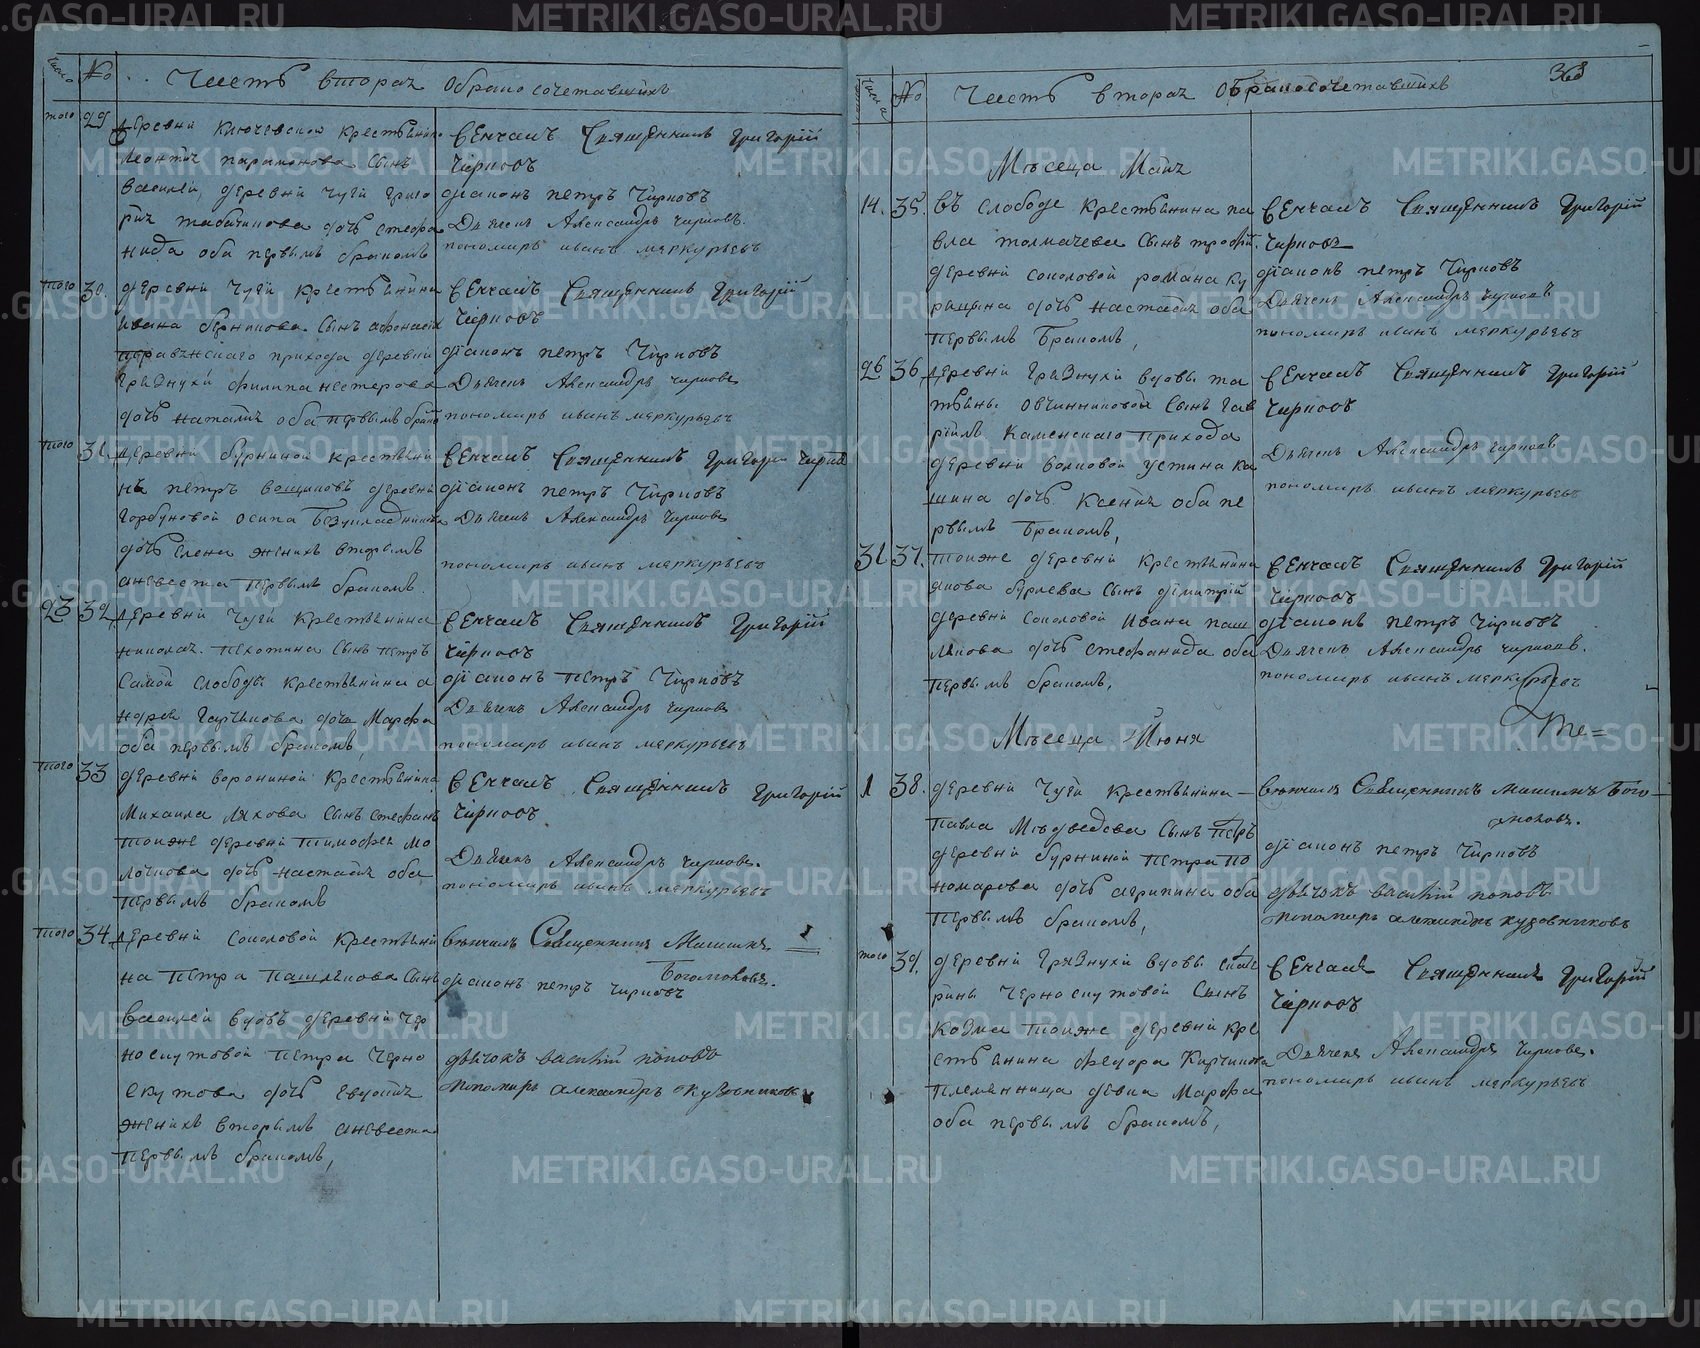 число
№
Часть вторая о бракосочетавшихъ
того
29.
деревни Ключевской крестьянина
Леонтия парамонова сынъ
василей, деревни чуги григо
рия табатчикова дочь стефа
нида оба первымъ бракомъ
Венчалъ Священникъ Григорий
Чирковъ
диаконъ петръ Чирковъ
Дьячекъ Александръ чирковъ.
пономарь иванъ меркурьевъ
того
30.
деревни чуги крестьянина
ивана сынъ афонасий
прихода деревни
грязнухи филипа нестерова
дочь наталия оба первымъ брако
Венчалъ Священникъ Григорий
Чирковъ
диаконъ петръ Чирковъ
Дьячекъ Александръ чирковъ
пономарь иванъ меркурьевъ
того
31.
деревни бурниной крестьяни
нъ петръ вощиковъ деревни
горбуновой осипа
дочь елена женихъ вторымъ
аневеста первымъ бракомъ.
Венчалъ Священникъ Григори чирков
диаконъ петръ Чирковъ
Дьячекъ Александръ чирковъ
пономарь иванъ меркурьевъ
23
32.
деревни чуги крестьянина
николая. пехотина сынъ петръ
самой слободы крестьянина а
ндрея дочь Марфа
оба первымъ бракомъ
Венчалъ Священникъ Григорий
чирковъ
диаконъ петръ Чирковъ
Дьячекъ Александръ чирковъ
пономарь иванъ меркурьевъ
того
33
деревни ворониной крестьянина
Михаила ляхова сынъ стефанъ
тоиже деревни тимофея мо
лочкова дочь настасия оба
первымъ бракомъ
Венчалъ Священникъ Григорий
Чирковъ
Дьячекъ Александръ чирковъ.
пономарь иванъ меркурьевъ
того
34.
деревни соколовой крестьяни
на петра пашлякова сынъ
василей вдовъ деревни чер
носкутовой петра черно
скутова дочь евдокия
женихъ вторымъ аневеста
первымъ бракомъ,
Венчалъ Священникъ
Богомоловъ.
диаконъ петръ чирковъ
дьячокъ василий поповъ
пономарь александръ кузовниковъ
363
число
№
Часть вторая о бракосочетавшихъ
Месеца Маия
14.
35.
въ слободе крестьянина па
вла толмачева сынъ трофи
деревни соколовой романа ку
рицына дочь настасия оба
первымъ бракомъ,
Венчалъ Священникъ Григорий
Чирковъ
диаконъ петръ Чирковъ
Дьячекъ Александръ чирковъ
пономарь иванъ меркурьевъ
26
36.
деревни грязнухи вдовы та
тьяны овчинниковой сынъ гав
риилъ Каменскаго прихода
деревни волковой устина ка
шина дочь. Ксения оба пе
рвымъ бракомъ,
Венчалъ Священникъ Григорий
чирковъ
Дьячекъ Александръ чирковъ
пономарь иванъ меркурьевъ
31
37.
тоиже деревни крестьянина
якова бурлева сынъ димитрий
деревни соколовой Ивана паш
лякова дочь стефанида оба
первымъ бракомъ,
Венчалъ Священникъ Григорий
Чирковъ
диаконъ петръ Чирковъ
Дьячекъ Александръ чирковъ.
пономарь иванъ меркурьевъ
Месеца Июня
1
38.
деревни Чуги крестьянина
павла Медведева сынъ петръ
деревни бурниной петра по
номарева дочь агрипина оба
первымъ бракомъ,
венчалъ Священникъ Бого
моловъ.
диаконъ петръ Чирковъ
дьячокъ василий поповъ
пономарь александръ кузовниковъ
того
39.
деревни грязнухи вдовы екате
рины черноскутовой сынъ
козма тоиже деревни кре
стьянина федора
племянница девка Марфа
оба первымъ бракомъ,
Венчалъ Священникъ Григорий
Чирковъ
Дьячекъ Александръ чирковъ.
пономарь иванъ меркурьевъ
METRIKI.GASO-URAL.RU